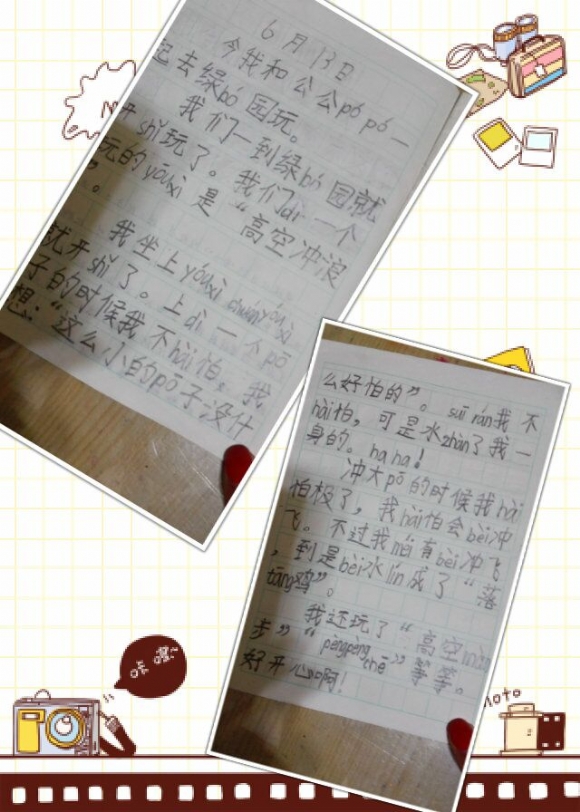 6月13日
今我和公公pó pó一
起去绿bó园玩。
我们一到绿bó园就
开shǐ玩了。我们dì一个
玩的yóuxì是“高空冲浪
”。
我坐上yóuxì chuányóuxì
就开shǐ了。上dì一个pō
子的时候我不hài怕，我
想：“这么小的pō子没什
么好怕的”。suī rán我不
hài怕，可是水zhān了我一
身的。ha ha！
冲大pō的时候我hài
怕极了，我hài怕会bèi冲
飞。不过我méi有bèi冲飞
，到是bèi水lín成了“落
tāng鸡”。
我还玩了“高空màn
步”“pèngpèng chē”等等。
好开心啊！
咔嚓~